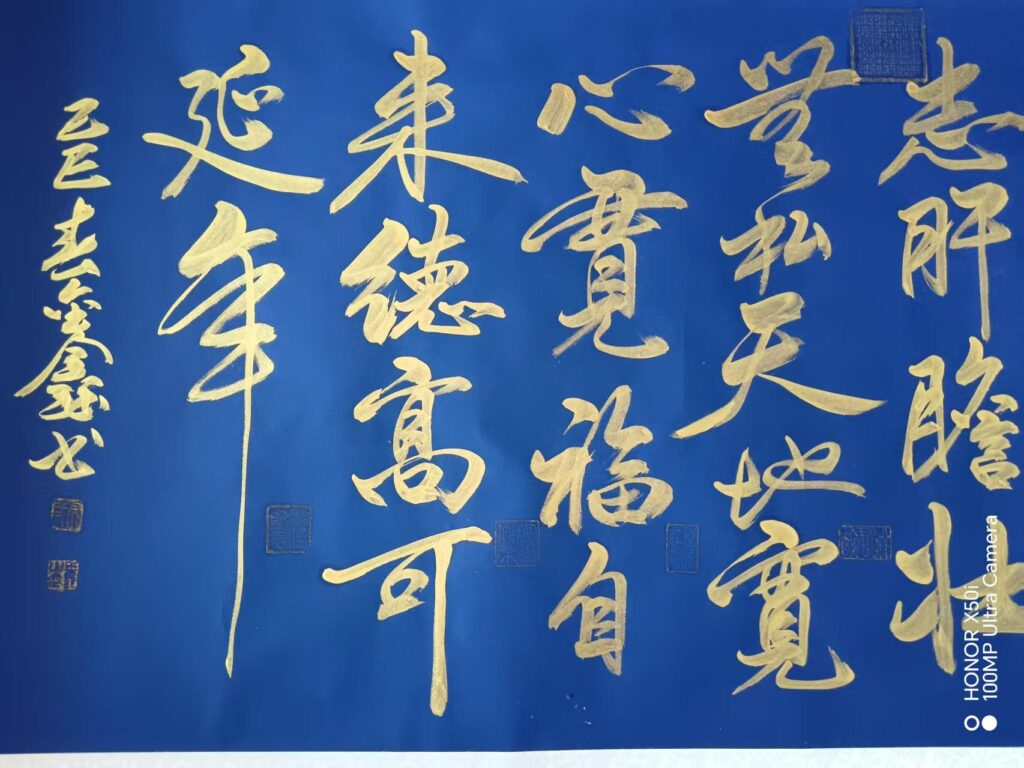 志肝膽壯
無私天地寬
心寬福自
来德高可
延年
乙巳春 书
HONOR X50i
100MP Ultra Camera